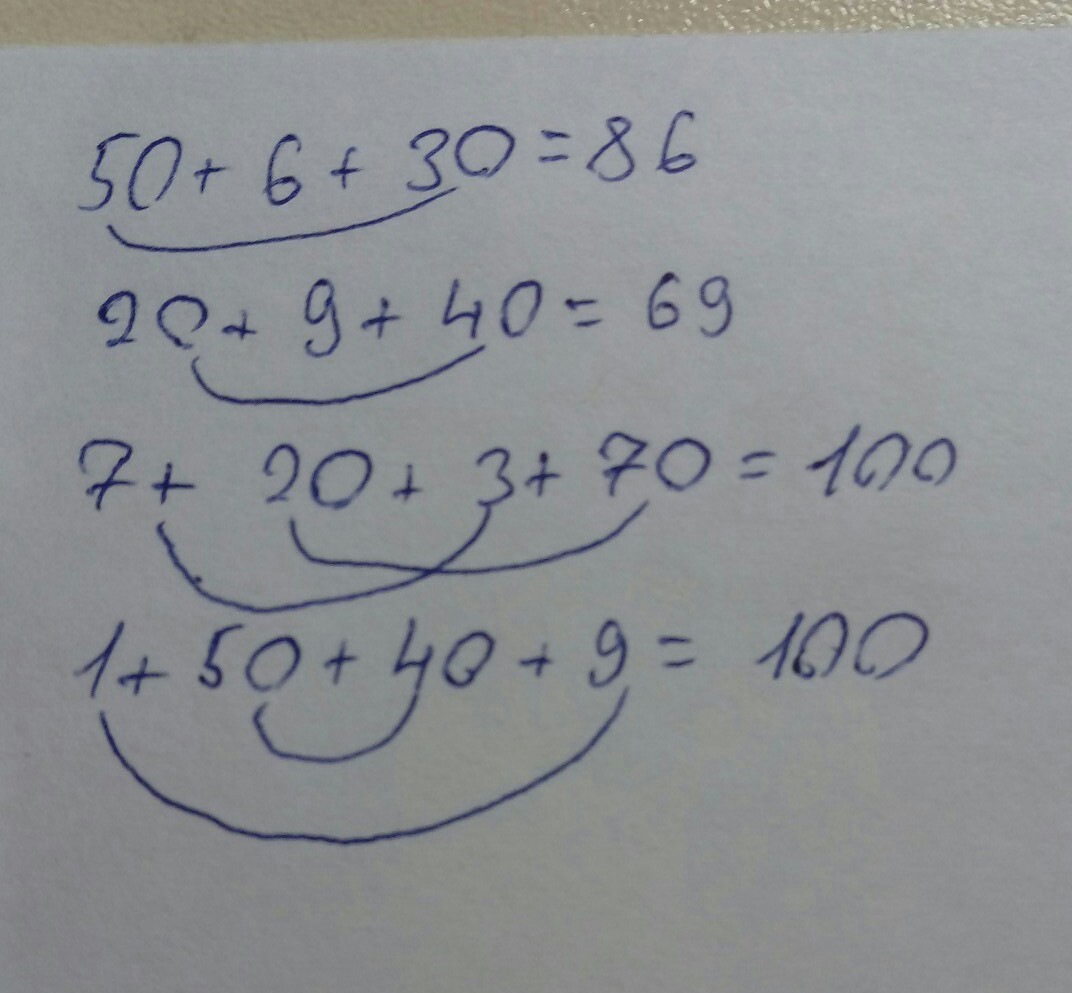 50+ 6 + 30 = 86
20+ 9+ 40= 69
7+ 20+ 3+ 70 = 100
1+ 50 + 40 + 9 = 100